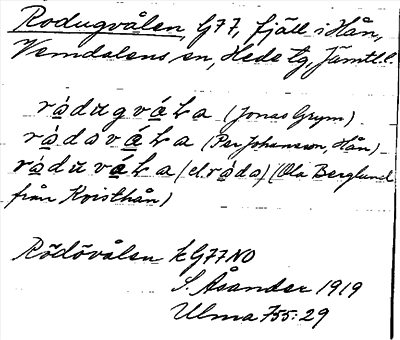 Rodugvålen, G77, fjäll i Hån,
Vemdalens sn, Hede tg, Jämtl.l.
rȧdugvála (Jonas Grym)
rȧdȧvála (Per Johansson, Hån)
rȧduvála (el. rȧda) (Ola Berglund
från Kvisthån)
Rödövålen k G77 NO
S. Åsander 1919
Ulma 755:29